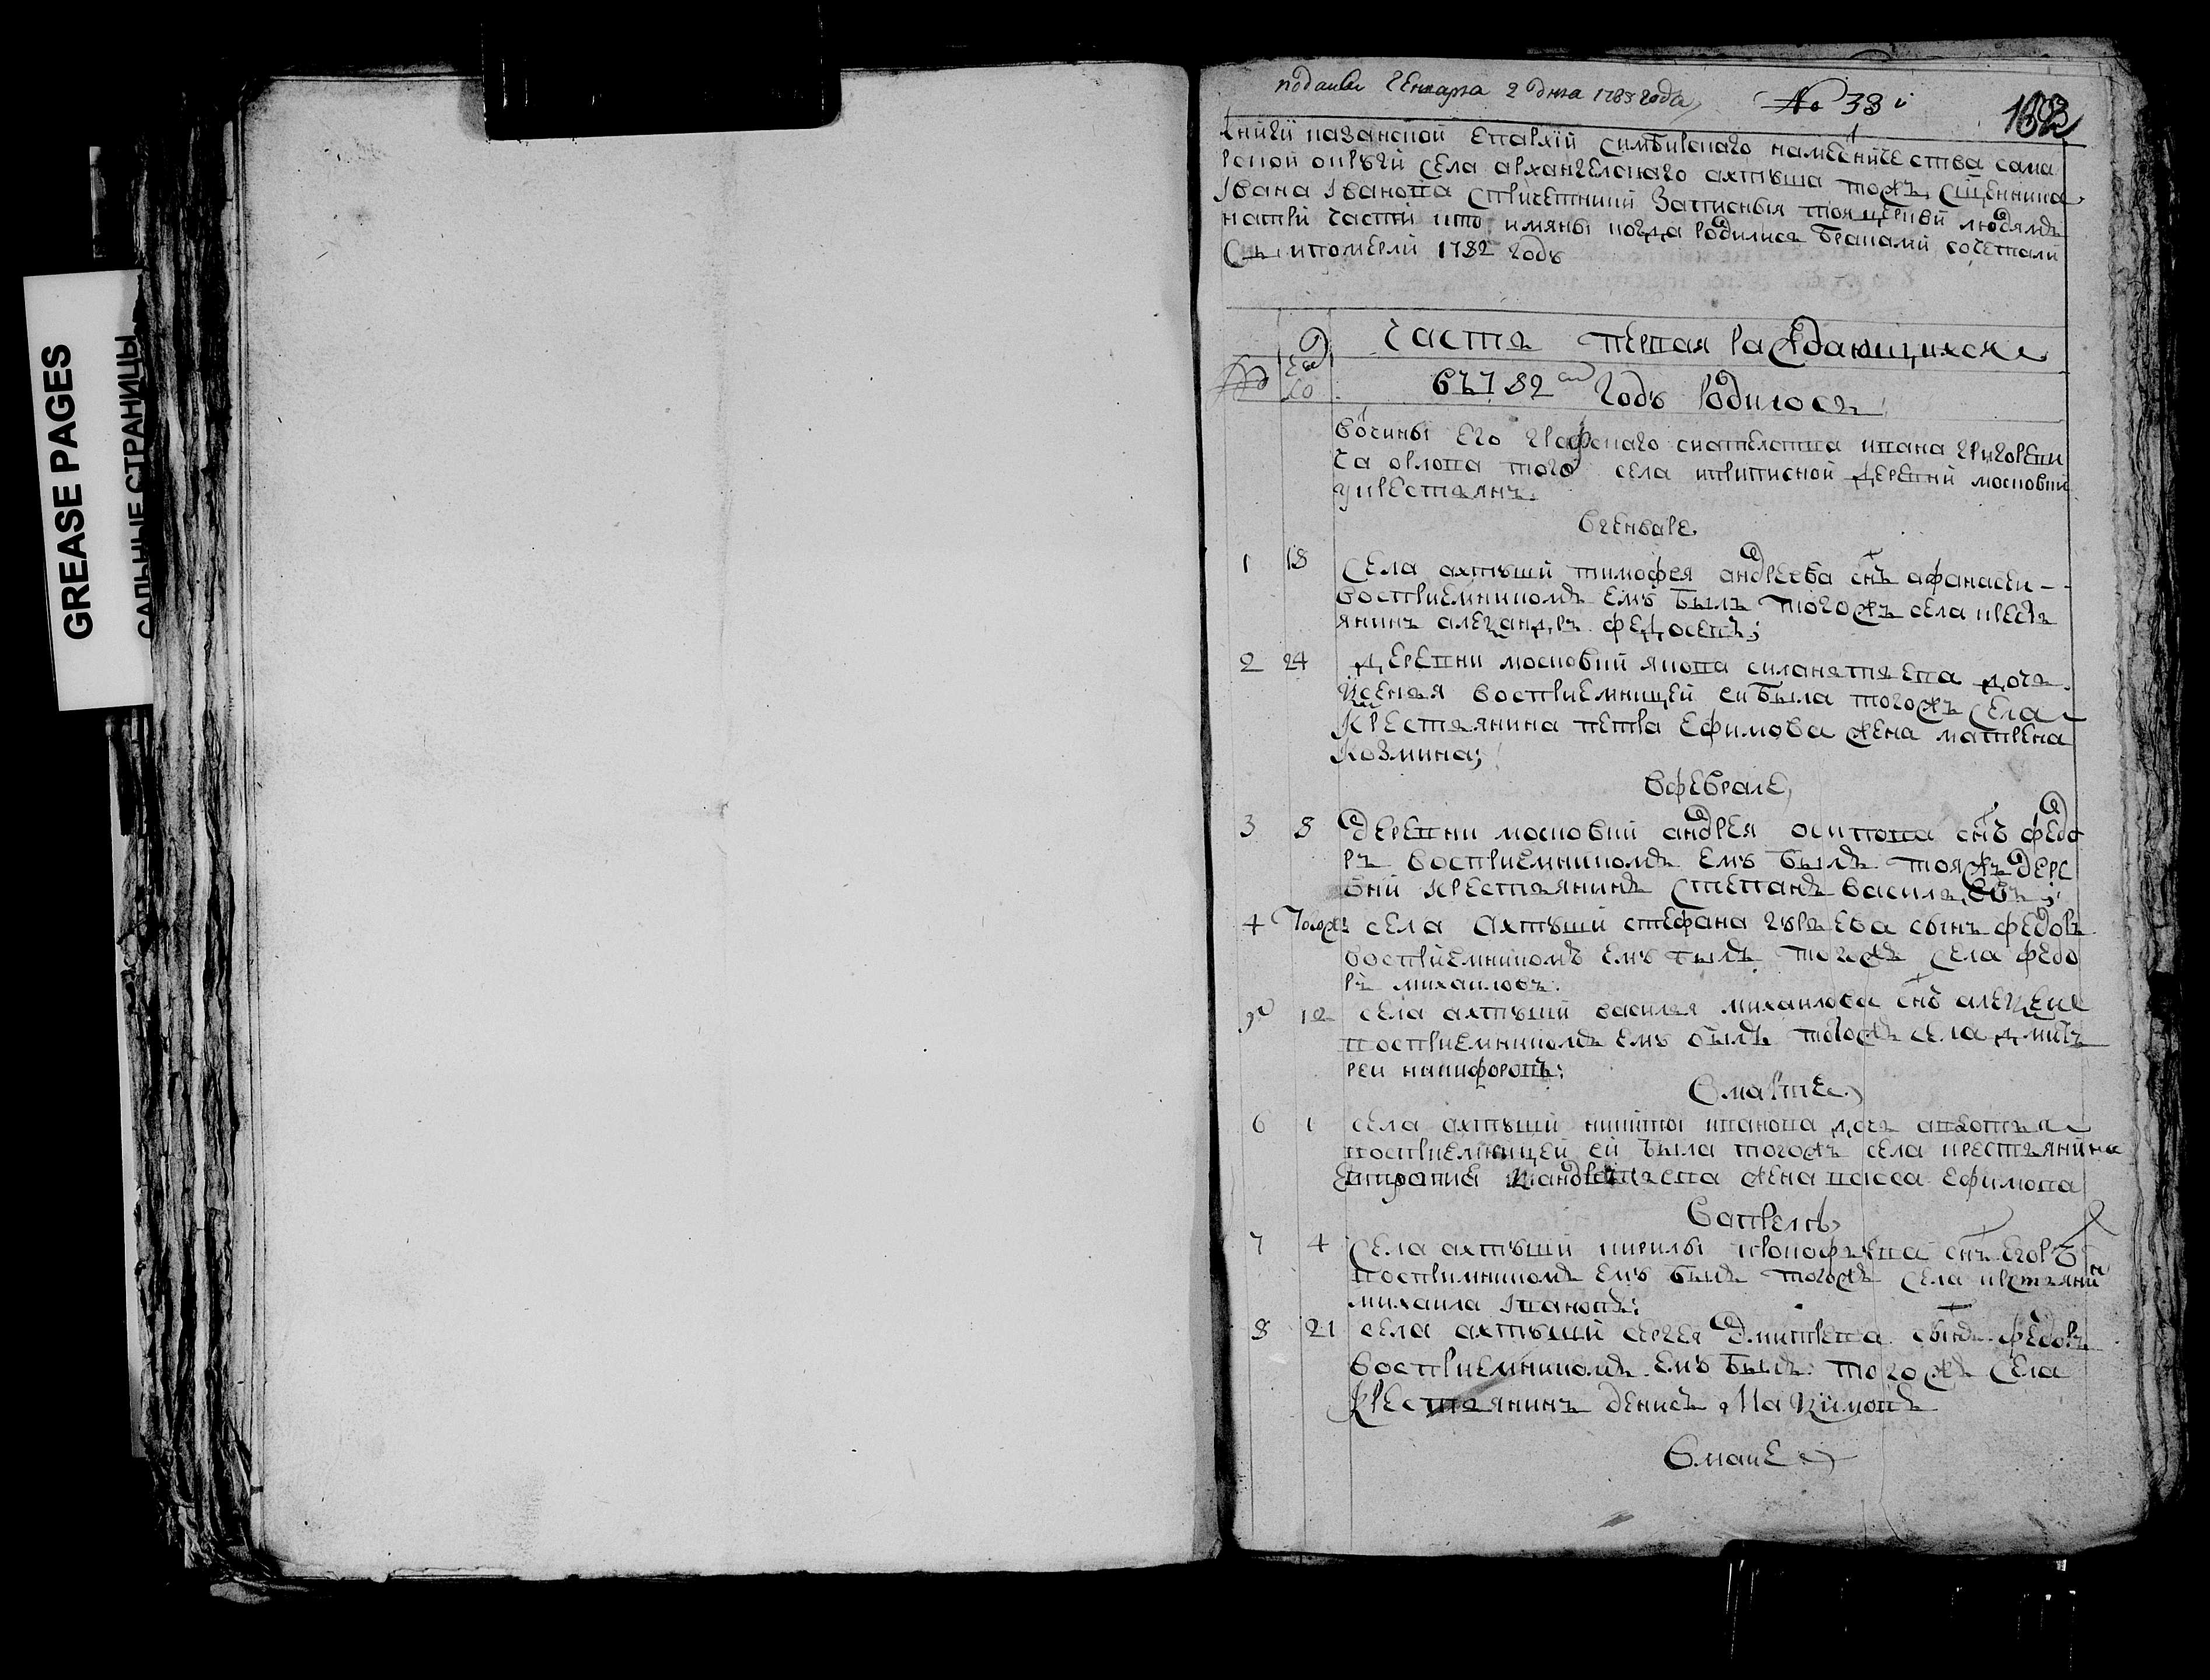 GREASE PAGES
САЛЬНЫЕ СТРАНИЦЫ
поданы генваря 2 дня 1783 года
№ 33
книги казанской епархии симбирскаго наместничества сама
рской округи села архангелскаго ахтуша тожъ сщенника
Iвана Iванова спричетники записныя тоя церкви людямъ
натри части кто имяны когда родились браками сочетали
сь ипомерли 1782 годъ
часть первая раждающихся
въ 782 годъ родилось
вочины его графскаго сиателства ивана григореви
ча орлова того села иприписной деревни московки
укрестьянъ
вгенваре
1 18 села ахтуши тимофея андреева снъ афанасеи
восприемникомъ емъ былъ тогожъ села крестъ
янинъ алеѯандръ федосевъ;
2 24 деревни московки якова силанятьева дочь
ѯсения восприемницей еи была тогожъ села
крестьянина петра ефимова жена матрена
козмина;
вфеврале
3 8 деревни московки андрея осипова снъ федо
ръ восприемникомъ емъ былъ тояжъ дере
вни крестьянинъ степанъ василъевъ;
4 тогожъ села ахтуши стефана гурьева сынъ федоръ
восприемникомъ емъ былъ тогожъ села федо
ръ михаиловъ:
5 12 села ахтуши василя михаилова снъ алеѯеи
восприемникомъ емъ былъ тогожъ села дмит
реи никифоровъ:
вмарте
6 1 села ахтуши никиты иванова дочь авдотья
восприемницей ей была тогожъ села крестьянина
жена васса ефимова
вапреле
7 4 села ахтуши кирилы прокофьева снъ егоръ
восприимникомъ емъ былъ тогожъ села крстьяни
михаила iвановъ:
8 21 села ахтуши сергея дмитрева сынъ федоръ
восприемникомъ емъ былъ тогожъ села
крестьянинъ денисъ маѯимовъ
вмаие